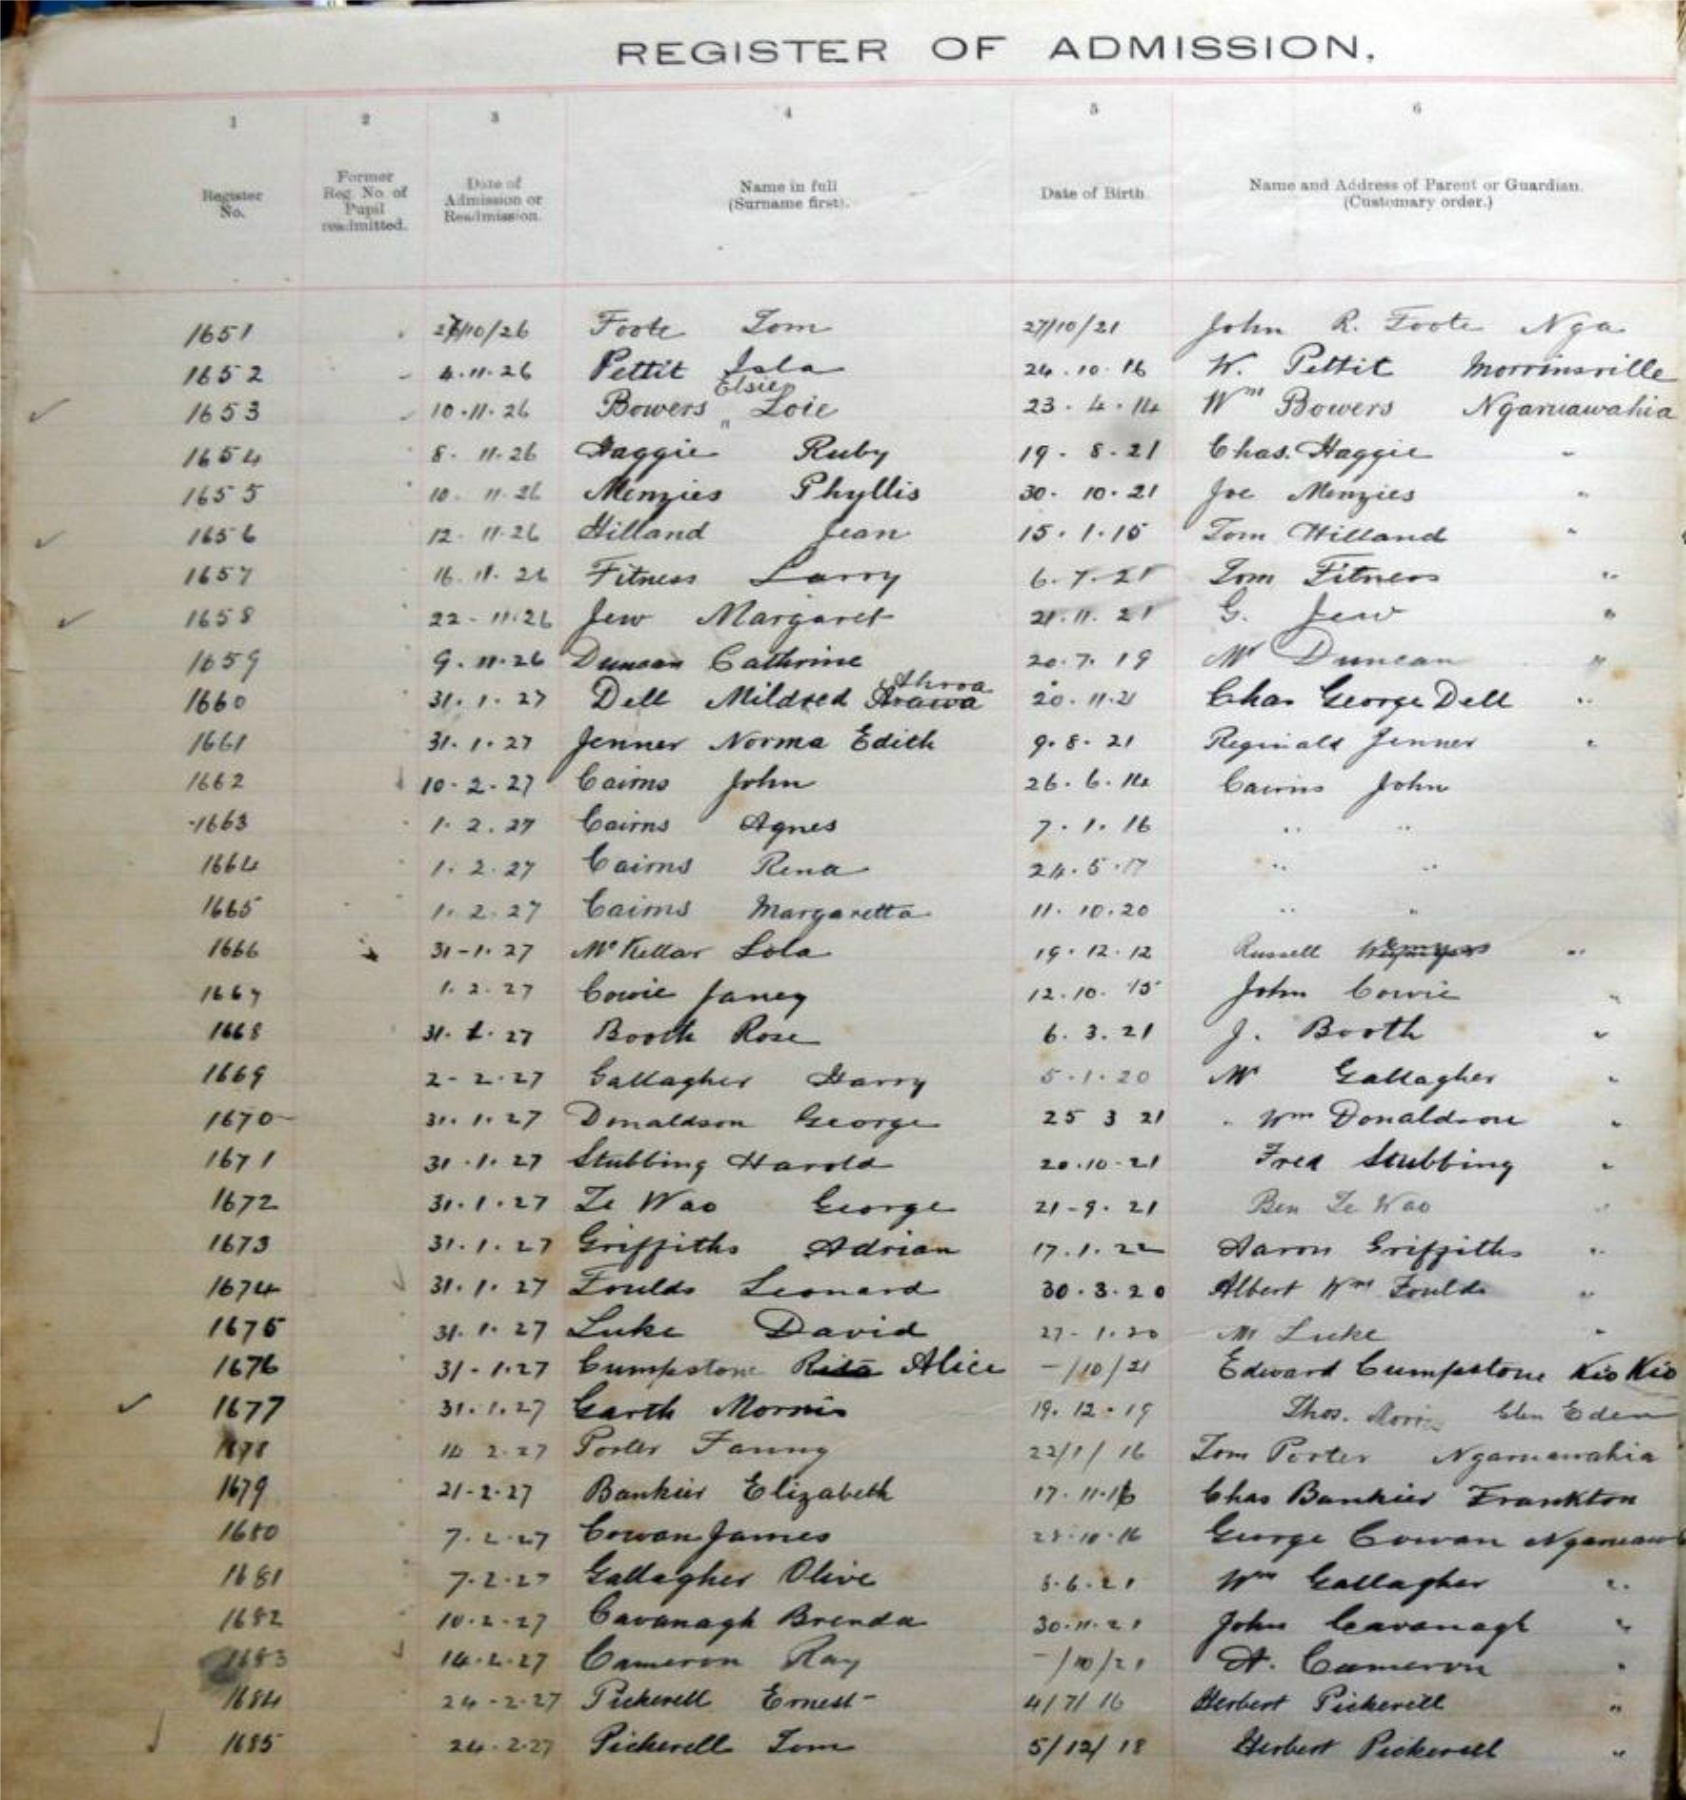 REGISTER OF ADMISSION.
1 2 3 4 5 6
Register No. Former Reg. No. of Pupil readmitted. Date of Admission or Readmission. Name in full (Surname first). Date of Birth. Name and Address of Parent or Guardian. (Customary order.)
1651 /10/26 Foote Tom 27/10/21 John R. Foote Nga
1652 4.11.26 Pettit Isla 24.10.16 W. Pettit Morrinsville
Elsie
1653 10.11.26 Bowers " Loie 23.4.14 Wm Bowers Ngaruawahia
1654 8.11.26 Haggie Ruby 19.8.21 Chas. Haggie "
1655 10.11.26 Menzies Phyllis 30.10.21 Joe Menzies "
1656 12.11.26 Hilland Jean 15.1.15 Tom Hilland "
1657 16.11.26 Fitness Larry 6.7.21 Tom Fitness "
1658 22-11.26 Jew Margaret 21.11.21 G. Jew "
1659 9.11.26 Duncan Cathrine 20.7.19 Mr Duncan "
Ahroa
1660 31.1.27 Dell Mildred Arawa 20.11.21 Chas George Dell "
1661 31.1.27 Jenner Norma Edith 9.8.21 Reginald Jenner "
1662 10-2-27 Cairns John 26.6.14 Cairns John
1663 1.2.27 Cairns Agnes 7.1.16 " "
1664 1.2.27 Cairns Rena 24.5.17 " "
1665 1.2.27 Cairns Margaretta 11.10.20 " "
1666 31-1.27 McKellar Lola 19.12.12 Russell "
1667 1.2.27 Cowie Janey 12.10.15 John Cowie "
1668 31.1.27 Booth Rose 6.3.21 J. Booth "
1669 2-2.27 Gallagher Harry 5.1.20 Mr Gallagher "
1670 31.1.27 Donaldson George 25 3 21 Wm Donaldson "
1671 31.1.27 Stubbing Harold 20.10.21 Fred Stubbing "
1672 31.1.27 Te Wao George 21-9.21 Ben Te Wao "
1673 31.1.27 Griffiths Adrian 17.1.22 Aaron Griffiths "
1674 31.1.27 Foulds Leonard 30.3.20 Albert Wm Foulds "
1675 31.1.27 Luke David 27-1.20 Mr Luke "
1676 31-1.27 Cumpstone Rita Alice -/10/21 Edward Cumpstone Kio Kio
1677 31.1.27 Garth Morris 19.12.19 Thos. Morris Glen Eden
1678 14 2.27 Porter Fanny 22/1/16 Tom Porter Ngaruawahia
1679 21-2-27 Bankier Elizabeth 17.11.16 Chas Bankier Frankton
1680 7.2.27 Cowan James 28.10.16 George Cowan Ngaruaw
1681 7.2.27 Gallagher Olive 8.6.21 Wm Gallagher "
1682 10.2.27 Cavanagh Brenda 30.11.21 John Cavanagh "
1683 14.2.27 Cameron Ray -/10/21 A. Cameron "
1684 24-2.27 Pickerell Ernest 4/7/16 Herbert Pickerell "
1685 24.2.27 Pickerell Tom 5/12/18 Herbert Pickerell "